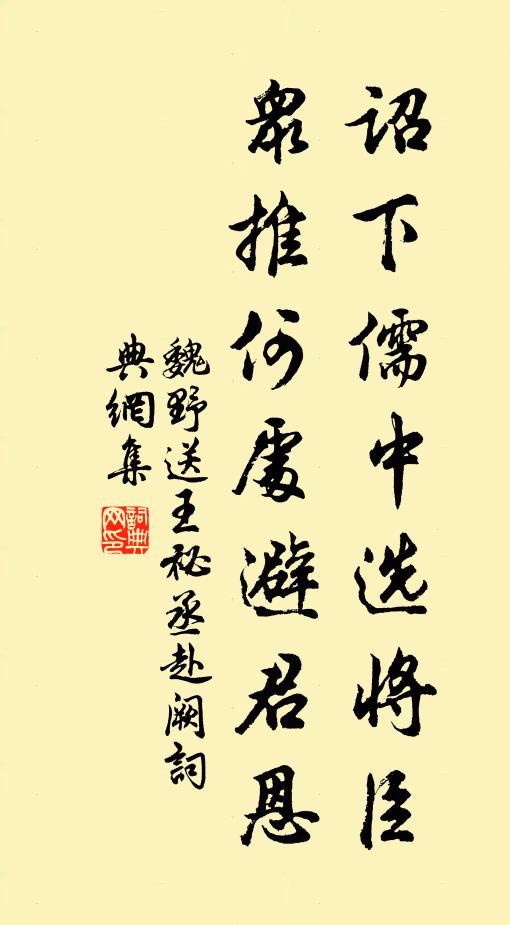 詔下儒中选將臣
眾推何處避君恩
魏野送王秘丞赴阙詞
典網集
詞典网印